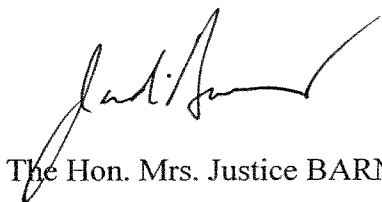 The Hon. Mrs. Justice BARN